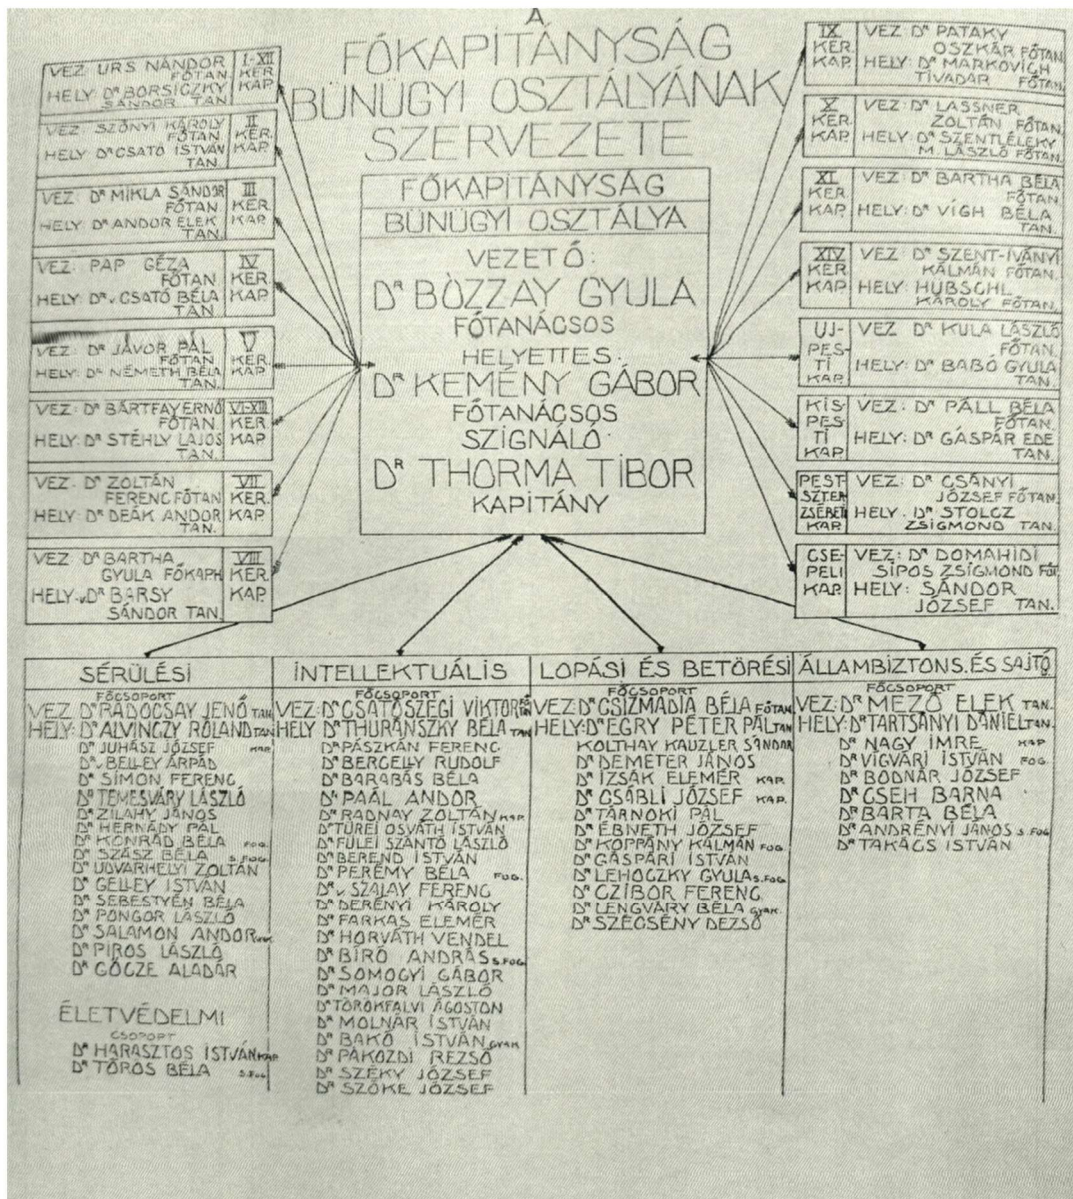 A
FŐKAPITÁNYSÁG
BÜNÜGYI OSZTÁLYÁNAK
SZERVEZETE
VEZ: URS NÁNDOR
FŐTAN.
HELY: Dʀ BORSICZKY
SÁNDOR TAN
I-XII
KER
KAP.
VEZ: SZŐNYI KÁROLY
FŐTAN.
HELY: Dʀ CSATÓ ISTVÁN
TAN.
II
KER.
KAP.
VEZ: Dʀ MIKLA SÁNDOR
FŐTAN
HELY: Dʀ ANDOR ELEK
TAN.
III
KER.
KAP.
VEZ: PAP GÉZA
FŐTAN
HELY: Dʀ v. CSATÓ BÉLA
TAN
IV
KER.
KAP.
VEZ: Dʀ JÁVOR PÁL
FŐTAN
HELY: Dʀ NÉMETH BÉLA
TAN.
V
KER.
KAP.
VEZ: Dʀ BÁRTFAY ERNŐ
FŐTAN.
HELY: Dʀ STÉHLY LAJOS
TAN.
VI-XIII
KER
KAP.
VEZ: Dʀ ZOLTÁN
FERENC FŐTAN
HELY: Dʀ DEÁK ANDOR
TAN.
VII
KER.
KAP.
VEZ: Dʀ BARTHA
GYULA FŐKAPH
HELY: v. Dʀ BARSY
SÁNDOR TAN.
VIII
KER.
KAP.
FŐKAPITÁNYSÁG
BÜNÜGYI OSZTÁLYA
VEZETŐ:
Dʀ BOZZAY GYULA
FŐTANÁCSOS
HELYETTES:
Dʀ KEMÉNY GÁBOR
FŐTANÁCSOS
SZIGNÁLÓ:
Dʀ THORMA TIBOR
KAPITÁNY
IX
KER.
KAP.
VEZ: Dʀ PATAKY
OSZKÁR FŐTAN.
HELY: Dʀ MARKOVICH
TIVADAR FŐTAN.
X
KER.
KAP.
VEZ: Dʀ LASSNER
ZOLTÁN FŐTAN.
HELY: Dʀ SZENTLÉLEKY
M. LÁSZLÓ FŐTAN.
XI
KER
KAP
VEZ: Dʀ BARTHA BÉLA
FŐTAN.
HELY: Dʀ VÍGH BÉLA
TAN.
XIV
KER.
KAP.
VEZ: Dʀ SZENT-IVÁNYI
KÁLMÁN FŐTAN.
HELY: HÜBSCHL
KÁROLY FŐTAN.
UJ-
PES-
TI
KAP.
VEZ Dʀ KULA LÁSZLÓ
FŐTAN.
HELY: Dʀ BABÓ GYULA
TAN.
KIS-
PES-
TI
KAP.
VEZ: Dʀ PÁLL BÉLA
FŐTAN.
HELY: Dʀ GÁSPÁR EDE
TAN.
PEST-
SZTER
ZSÉBETI
KAP.
VEZ: Dʀ CSÁNYI
JÓZSEF FŐTAN.
HELY: Dʀ STOLCZ
ZSIGMOND TAN.
CSE-
PELI
KAP.
VEZ: Dʀ DOMAHIDI
SIPOS ZSIGMOND FŐT.
HELY: SÁNDOR
JÓZSEF TAN.
SÉRÜLÉSI
FŐCSOPORT
VEZ Dʀ RADOCSAY JENŐ TAN.
HELY: Dʀ ALVINCZY ROLAND TAN
Dʀ JUHÁSZ JÓZSEF KAP.
Dʀ v. BELLEY ÁRPÁD
Dʀ SIMON FERENC
Dʀ TEMESVÁRY LÁSZLÓ
Dʀ ZILAHY JÁNOS
Dʀ HERNÁDY PÁL
Dʀ KONRÁD BÉLA FOG.
Dʀ SZÁSZ BÉLA S.FOG.
Dʀ UDVARHELYI ZOLTÁN
Dʀ GELLEY ISTVÁN
Dʀ SEBESTYÉN BÉLA
Dʀ PONGOR LÁSZLÓ
Dʀ SALAMON ANDOR
Dʀ PIROS LÁSZLÓ
Dʀ GŐCZE ALADÁR
ÉLETVÉDELMI
CSOPORT
Dʀ HARASZTOS ISTVÁN KAP.
Dʀ TÖRÖS BÉLA S.FOG.
INTELLEKTUÁLIS
FŐCSOPORT
VEZ: Dʀ CSATÓSZEGI VIKTOR FŐTAN
HELY Dʀ THURÁNSZKY BÉLA TAN
Dʀ PÁSZKÁN FERENC
Dʀ BERGELLY RUDOLF
Dʀ BARABÁS BÉLA
Dʀ PAÁL ANDOR
Dʀ RADNAY ZOLTÁN KAP.
Dʀ TÜREI OSVÁTH ISTVÁN
Dʀ FÜLEI SZÁNTÓ LÁSZLÓ
Dʀ BEREND ISTVÁN
Dʀ PERÉMY BÉLA FOG.
Dʀ v. SZALAY FERENC
Dʀ DERÉNYI KÁROLY
Dʀ FARKAS ELEMÉR
Dʀ HORVÁTH VENDEL
Dʀ BIRÓ ANDRÁS S.FOG.
Dʀ SOMOGYI GÁBOR
Dʀ MAJOR LÁSZLÓ
Dʀ TÖRÖKFALVI ÁGOSTON
Dʀ MOLNÁR ISTVÁN
Dʀ BAKÓ ISTVÁN GYAK.
Dʀ PÁKOZDI REZSŐ
Dʀ SZÉKY JÓZSEF
Dʀ SZŐKE JÓZSEF
LOPÁSI ÉS BETÖRÉSI
FŐCSOPORT
VEZ: Dʀ CSIZMADIA BÉLA FŐTAN.
HELY: Dʀ EGRY PÉTER PÁL TAN
KOLTHAY KAUZLER SÁNDOR
Dʀ DEMETER JÁNOS
Dʀ IZSÁK ELEMÉR KAP.
Dʀ CSÁBLI JÓZSEF KAP.
Dʀ TÁRNOKI PÁL
Dʀ ÉBNETH JÓZSEF
Dʀ KOPPÁNY KÁLMÁN FOG.
Dʀ GÁSPÁRI ISTVÁN
Dʀ LEHOCZKY GYULA S.FOG.
Dʀ CZIBOR FERENC
Dʀ LENGVÁRY BÉLA GYAK.
Dʀ SZECSÉNY DEZSŐ
ÁLLAMBIZTONS. ÉS SAJTÓ
FŐCSOPORT
VEZ: Dʀ MEZŐ ELEK TAN.
HELY: Dʀ TARTSÁNYI DÁNIEL TAN.
Dʀ NAGY IMRE KAP
Dʀ VIGVÁRI ISTVÁN FOG.
Dʀ BODNÁR JÓZSEF
Dʀ CSEH BARNA
Dʀ BARTA BÉLA
Dʀ ANDRÉNYI JÁNOS S.FOG
Dʀ TAKÁCS ISTVÁN